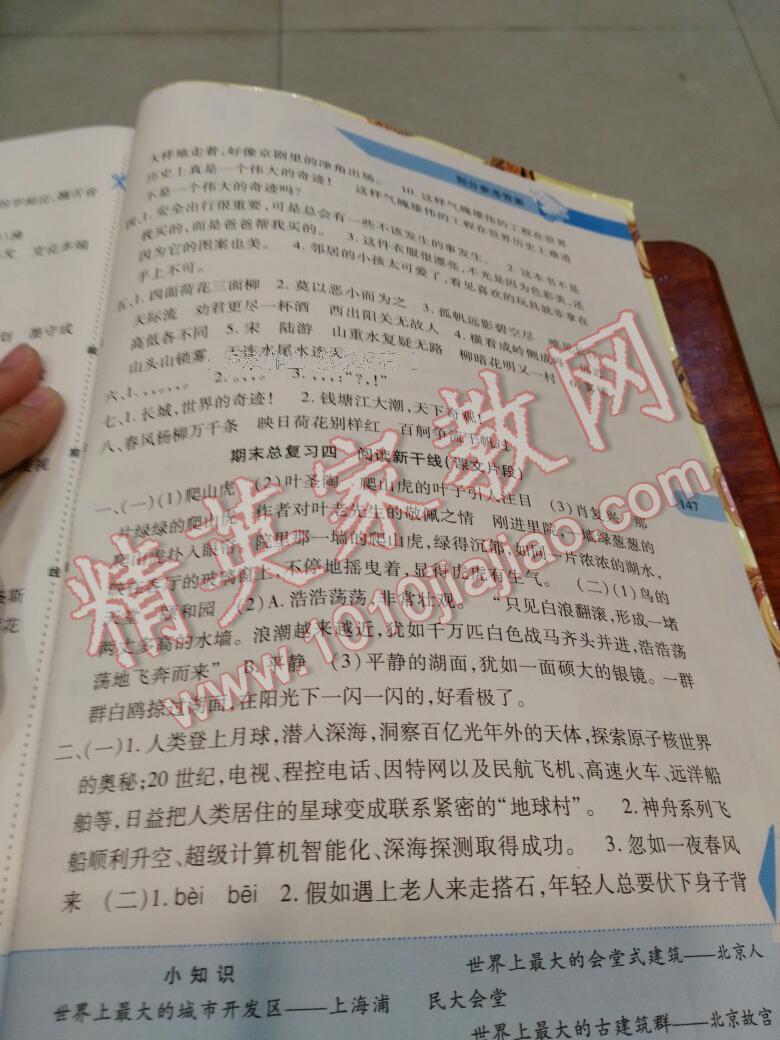 部分参考答案
大样地走着,好像京剧里的净角出场。 10.这样气魄雄伟的工程在世界
历史上真是一个伟大的奇迹! 这样气魄雄伟的工程在世界历史上难道
不是一个伟大的奇迹吗?
四、1.安全出行很重要,可是总会有一些不该发生的事发生。 2.这本书不是
我买的,而是爸爸帮我买的。 3.这件衣服很漂亮,不光是因为色彩美,还
因为它的图案也美。 4.邻居的小孩太可爱了,看见喜欢的玩具就非拿在
手上不可。
五、1.四面荷花三面柳 2.莫以恶小而为之 3.孤帆远影碧空尽 唯见长江
天际流 劝君更尽一杯酒 西出阳关无故人 4.横看成岭侧成峰 远近
高低各不同 5.宋 陆游 山重水复疑无路 柳暗花明又一村
山头山锁雾 天连水尾水连天
六、1.,,。,。 2.。,,。 3.,,:“?,!”
七、1.长城,世界的奇迹! 2.钱塘江大潮,天下奇观!
八、春风杨柳万千条 映日荷花别样红 百舸争流千帆过
期末总复习四 阅读新干线(课文片段)
一、(一)(1)爬山虎 (2)叶圣陶 爬山虎的叶子引人注目 (3)肖复兴 那
片绿绿的爬山虎 作者对叶老先生的敬佩之情 刚进里院,一墙绿葱葱的
爬山虎扑入眼帘 院里那一墙的爬山虎,绿得沉郁,如同一片浓浓的湖水,
映在客厅的玻璃窗上,不停地摇曳着,显得虎虎有生气。 (二)(1)鸟的
天堂 颐和园 (2)A.浩浩荡荡,非常壮观。 “只见白浪翻滚,形成一堵
两丈多高的水墙。浪潮越来越近,犹如千万匹白色战马齐头并进,浩浩荡
荡地飞奔而来” B.平静 (3)平静的湖面,犹如一面硕大的银镜。一群
群白鸥掠过湖面,在阳光下一闪一闪的,好看极了。
二、(一)1.人类登上月球,潜入深海,洞察百亿光年外的天体,探索原子核世界
的奥秘;20世纪,电视、程控电话、因特网以及民航飞机、高速火车、远洋船
舶等,日益把人类居住的星球变成联系紧密的“地球村”。 2.神舟系列飞
船顺利升空、超级计算机智能化、深海探测取得成功。 3.忽如一夜春风
来 (二)1.bèi bēi 2.假如遇上老人来走搭石,年轻人总要伏下身子背
147
小知识
世界上最大的城市开发区——上海浦
世界上最大的会堂式建筑——北京人
民大会堂
世界上最大的古建筑群——北京故宫
精英家教网
www.1010jiajiao.com